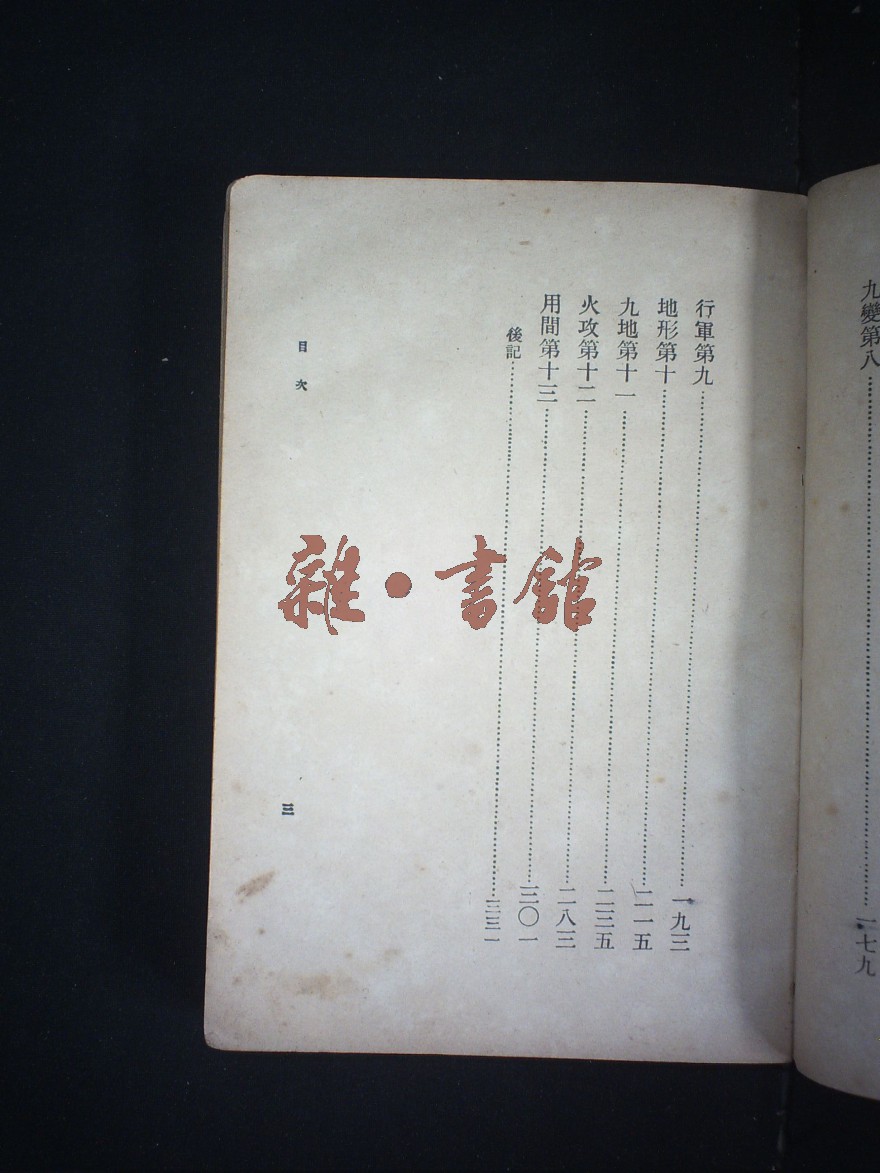 九變第八……一七九
行軍第九……一九三
地形第十……二一五
九地第十一……二三五
火攻第十二……二八三
用間第十三……三〇一
後記……三三一
目次
三
雜·書館